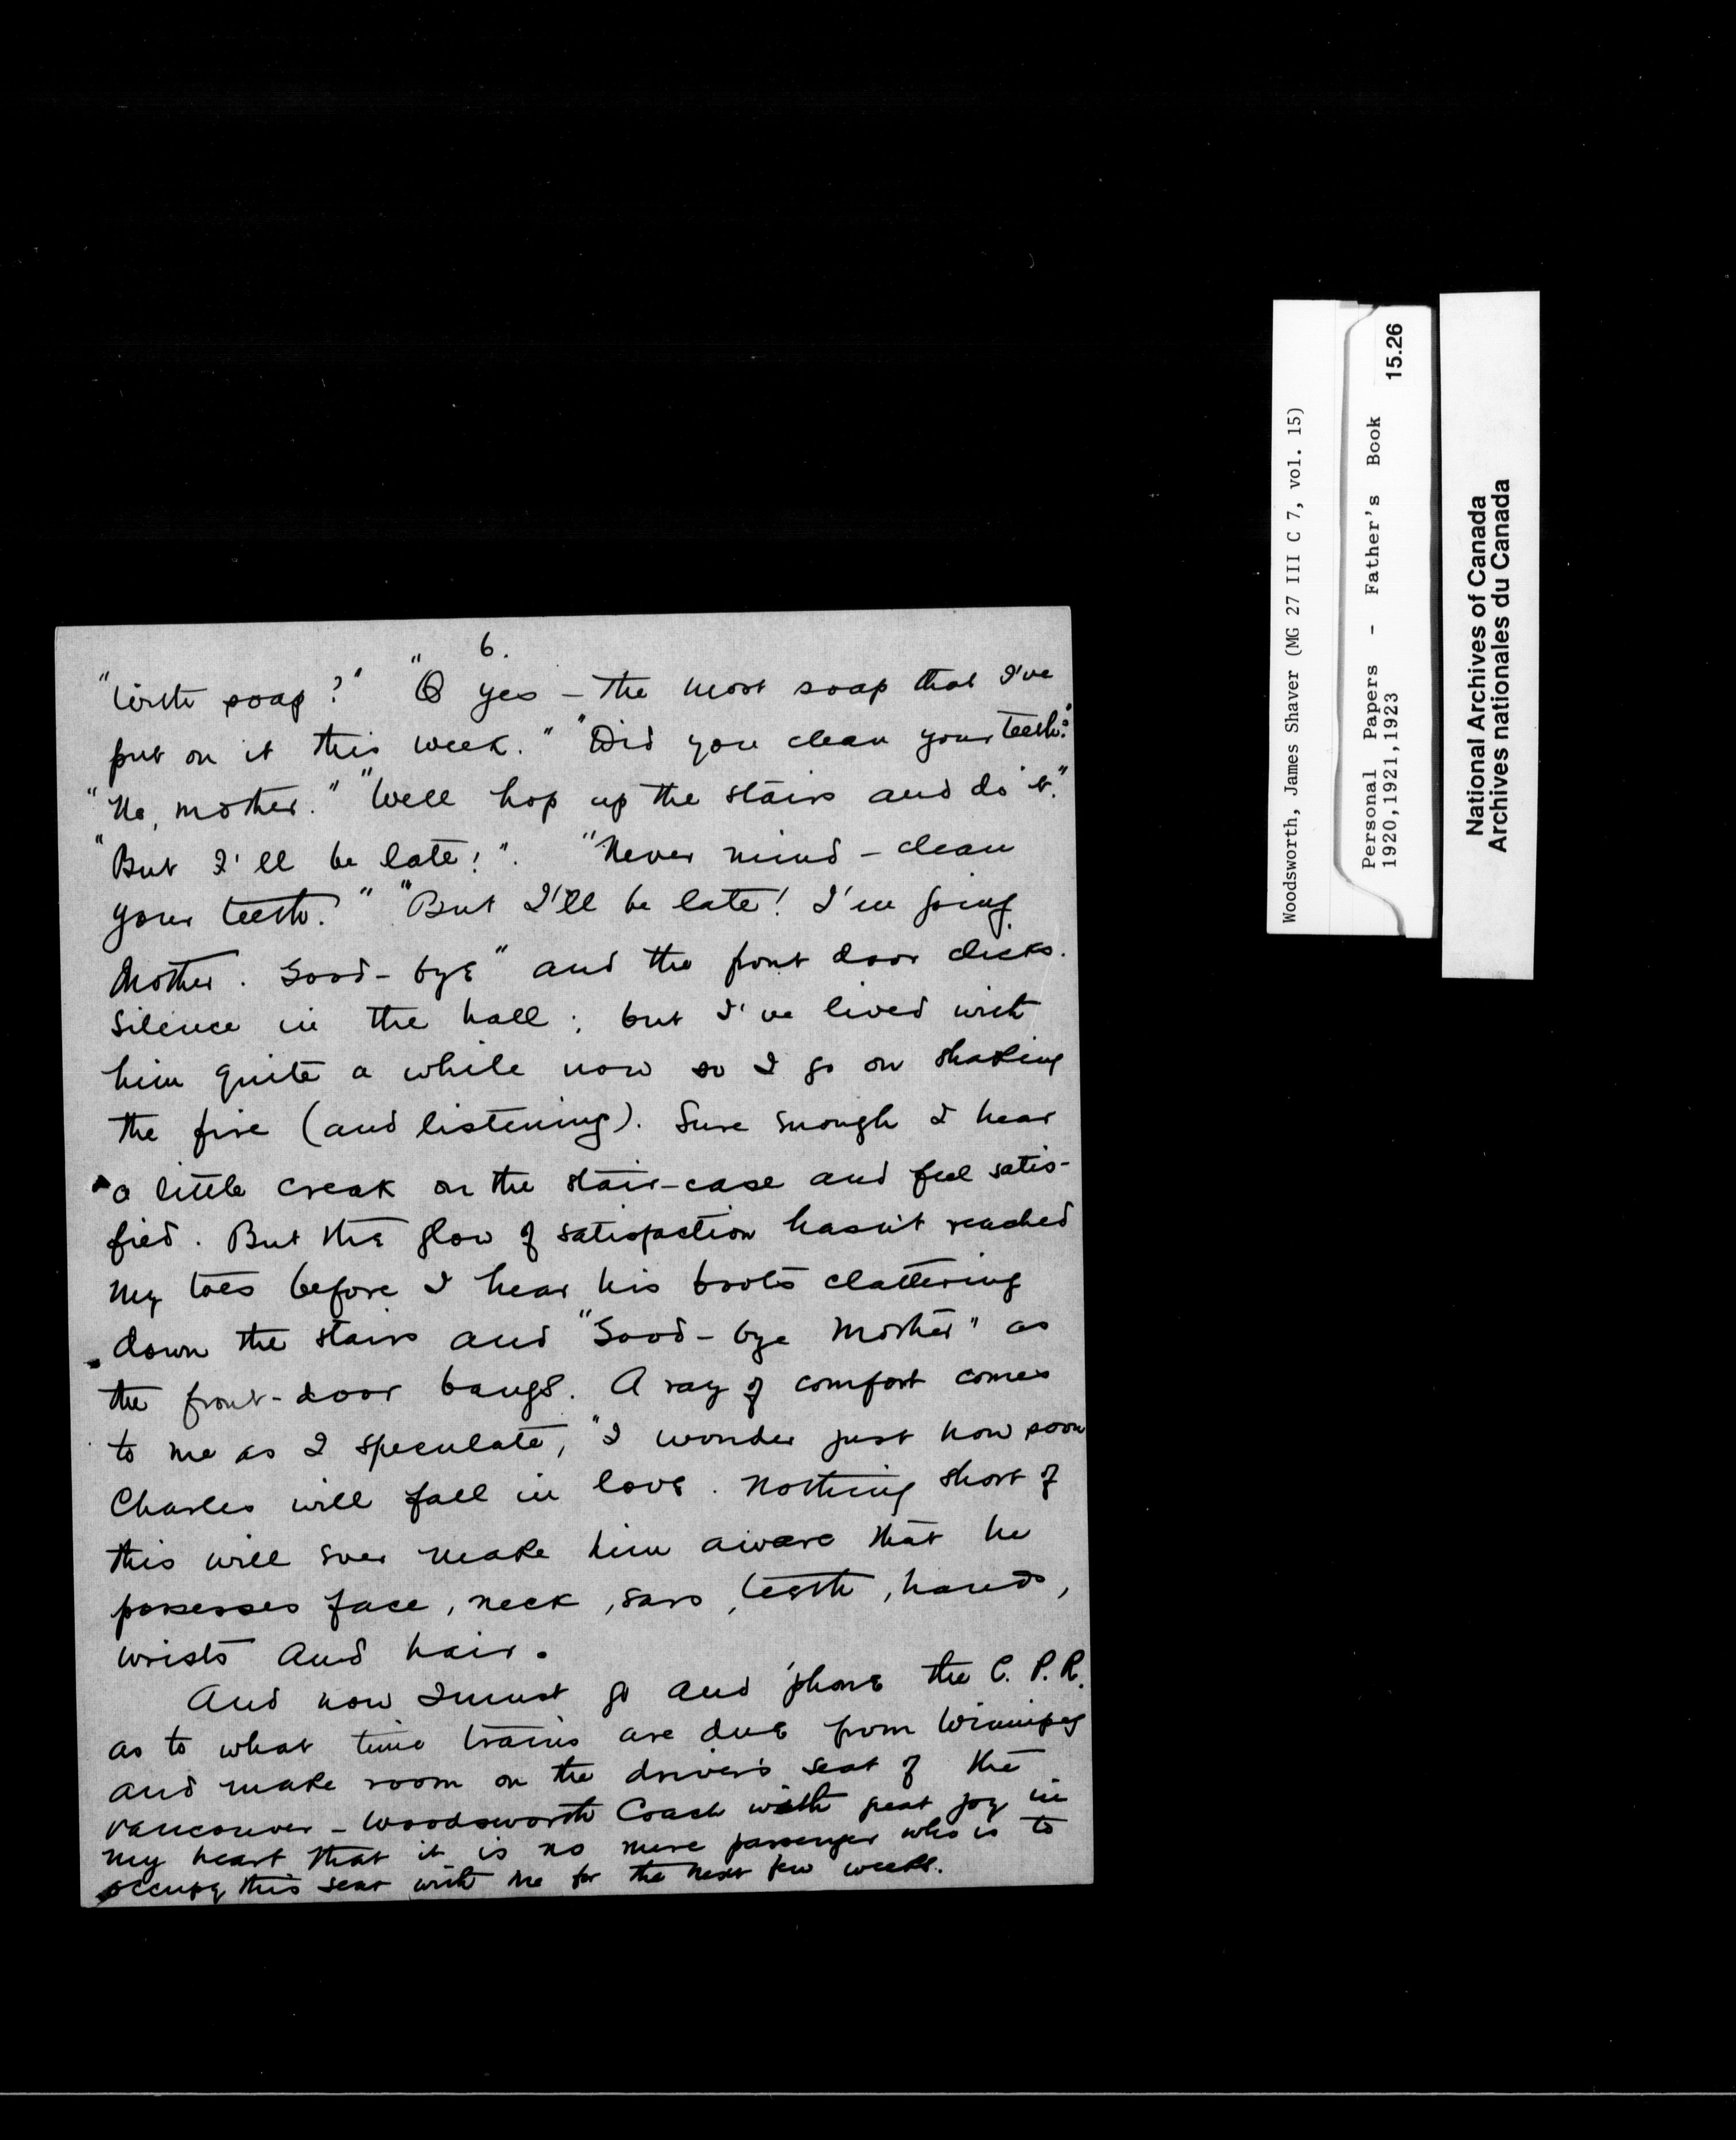 6.
"With soap?" "O yes – the most soap that I've
put on it this week." "Did you clean your teeth?"
"No, mother." "Well hop up the stairs and do it."
"But I'll be late!". "Never mind – clean
your teeth." "But I'll be late! I'm going
Mother. Good-bye" and the front door clicks.
Silence in the hall; but I've lived with
him quite a while now so I go on shaking
the fire (and listening). Sure enough I hear
a little creak on the stair-case and feel satis-
fied. But the glow of satisfaction hasn't reached
my toes before I hear his boots clattering
down the stairs and "Good-bye Mother" as
the front-door bangs. A ray of comfort comes
to me as I speculate, "I wonder just how soon
Charles will fall in love. Nothing short of
this will ever make him aware that he
possesses face, neck, ears, teeth, hands,
wrists and hair.
And now I must go and 'phone the C. P. R.
as to what time trains are due from Winnipeg
and make room on the driver's seat of the
Vancouver – Woodsworth Coach with great joy in
my heart that it is no mere passenger who is to
occupy this seat with me for the next few weeks.
Woodsworth, James Shaver (MG 27 III C 7, vol. 15)
Personal Papers - Father's Book 15.26
1920,1921,1923
National Archives of Canada
Archives nationales du Canada